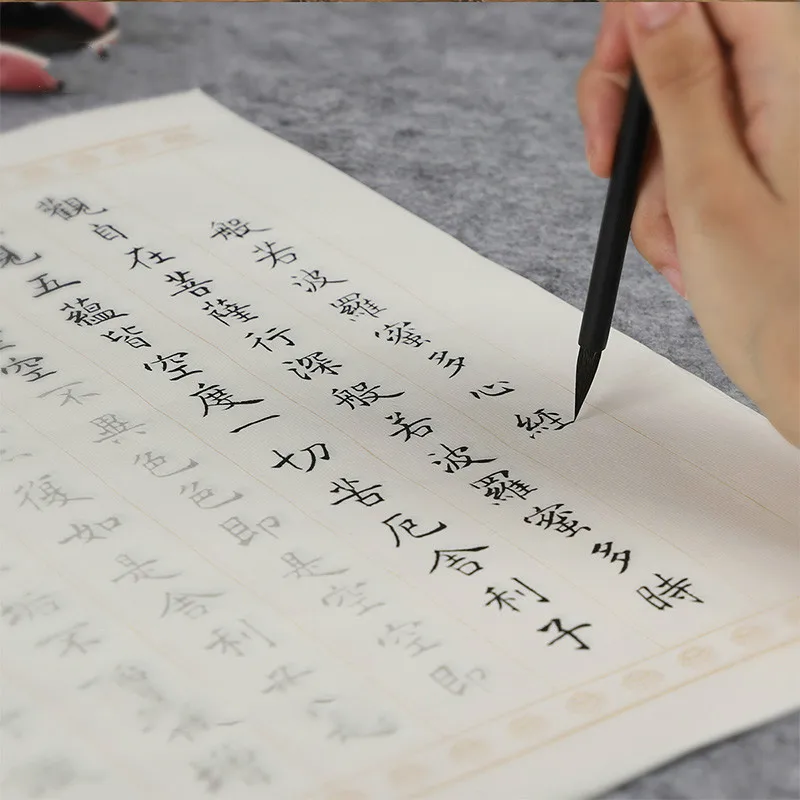 般若波羅蜜多心經
觀自在菩薩行深般若波羅蜜多時
見五蘊皆空度一切苦厄舍利子
空不異色色即是空空即
復如是舍利子是
垢不淨不增